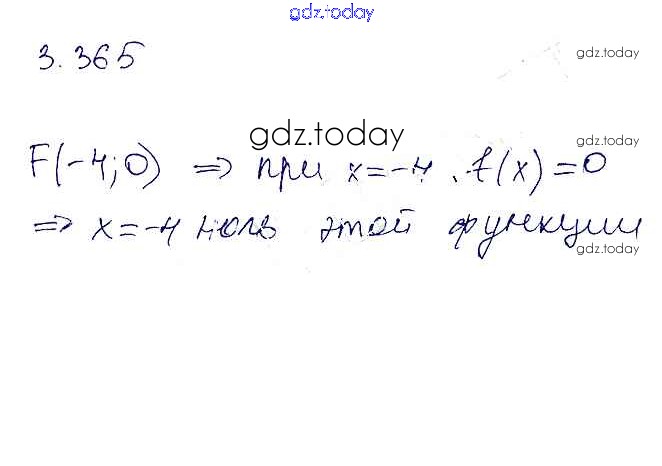 gdz.today
3.365
gdz.today
gdz.today
gdz.today
F(-4;0) ⇒ при x=-4 . f(x)=0
gdz.today
⇒ x=-4 ноль этой функции
gdz.today